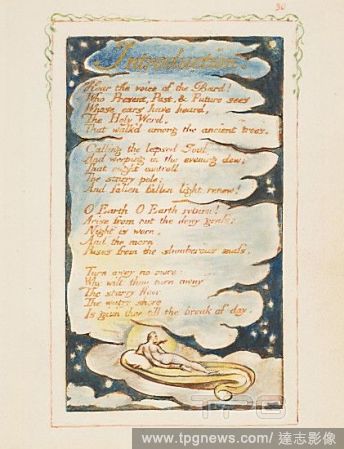 30
Introduction.
Hear the voice of the Bard!
Who Present, Past, & Future sees
Whose ears have heard,
The Holy Word,
That walk'd among the ancient trees.
Calling the lapsed Soul
And weeping in the evening dew;
That might controll
The starry pole;
And fallen fallen light renew!
O Earth O Earth return!
Arise from out the dewy grass;
Night is worn,
And the morn
Rises from the slumberous mass.
Turn away no more:
Why wilt thou turn away
The starry floor
The watry shore
Is giv'n thee till the break of day.
TPG
www.tpgnews.com/ 達志影像